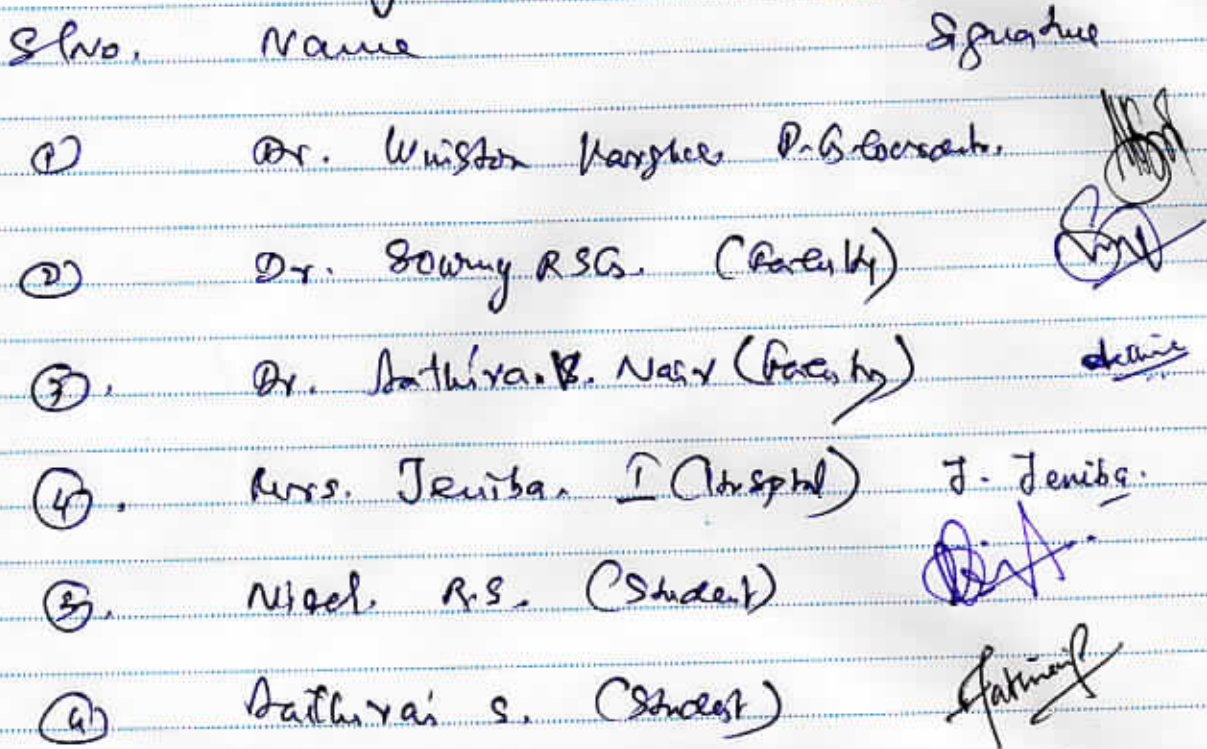 Sl No. Name Signature
① Dr. Winston Varghee P.G.
② Dr. Sowmy RSG. (Faculty)
③. Dr. Aathira. B. Nair (Faculty)
④. Mrs. Jeniba. I (Hospital) J. Jeniba.
⑤. Nigel. R.S. (Student)
Aathirai S. (Student)